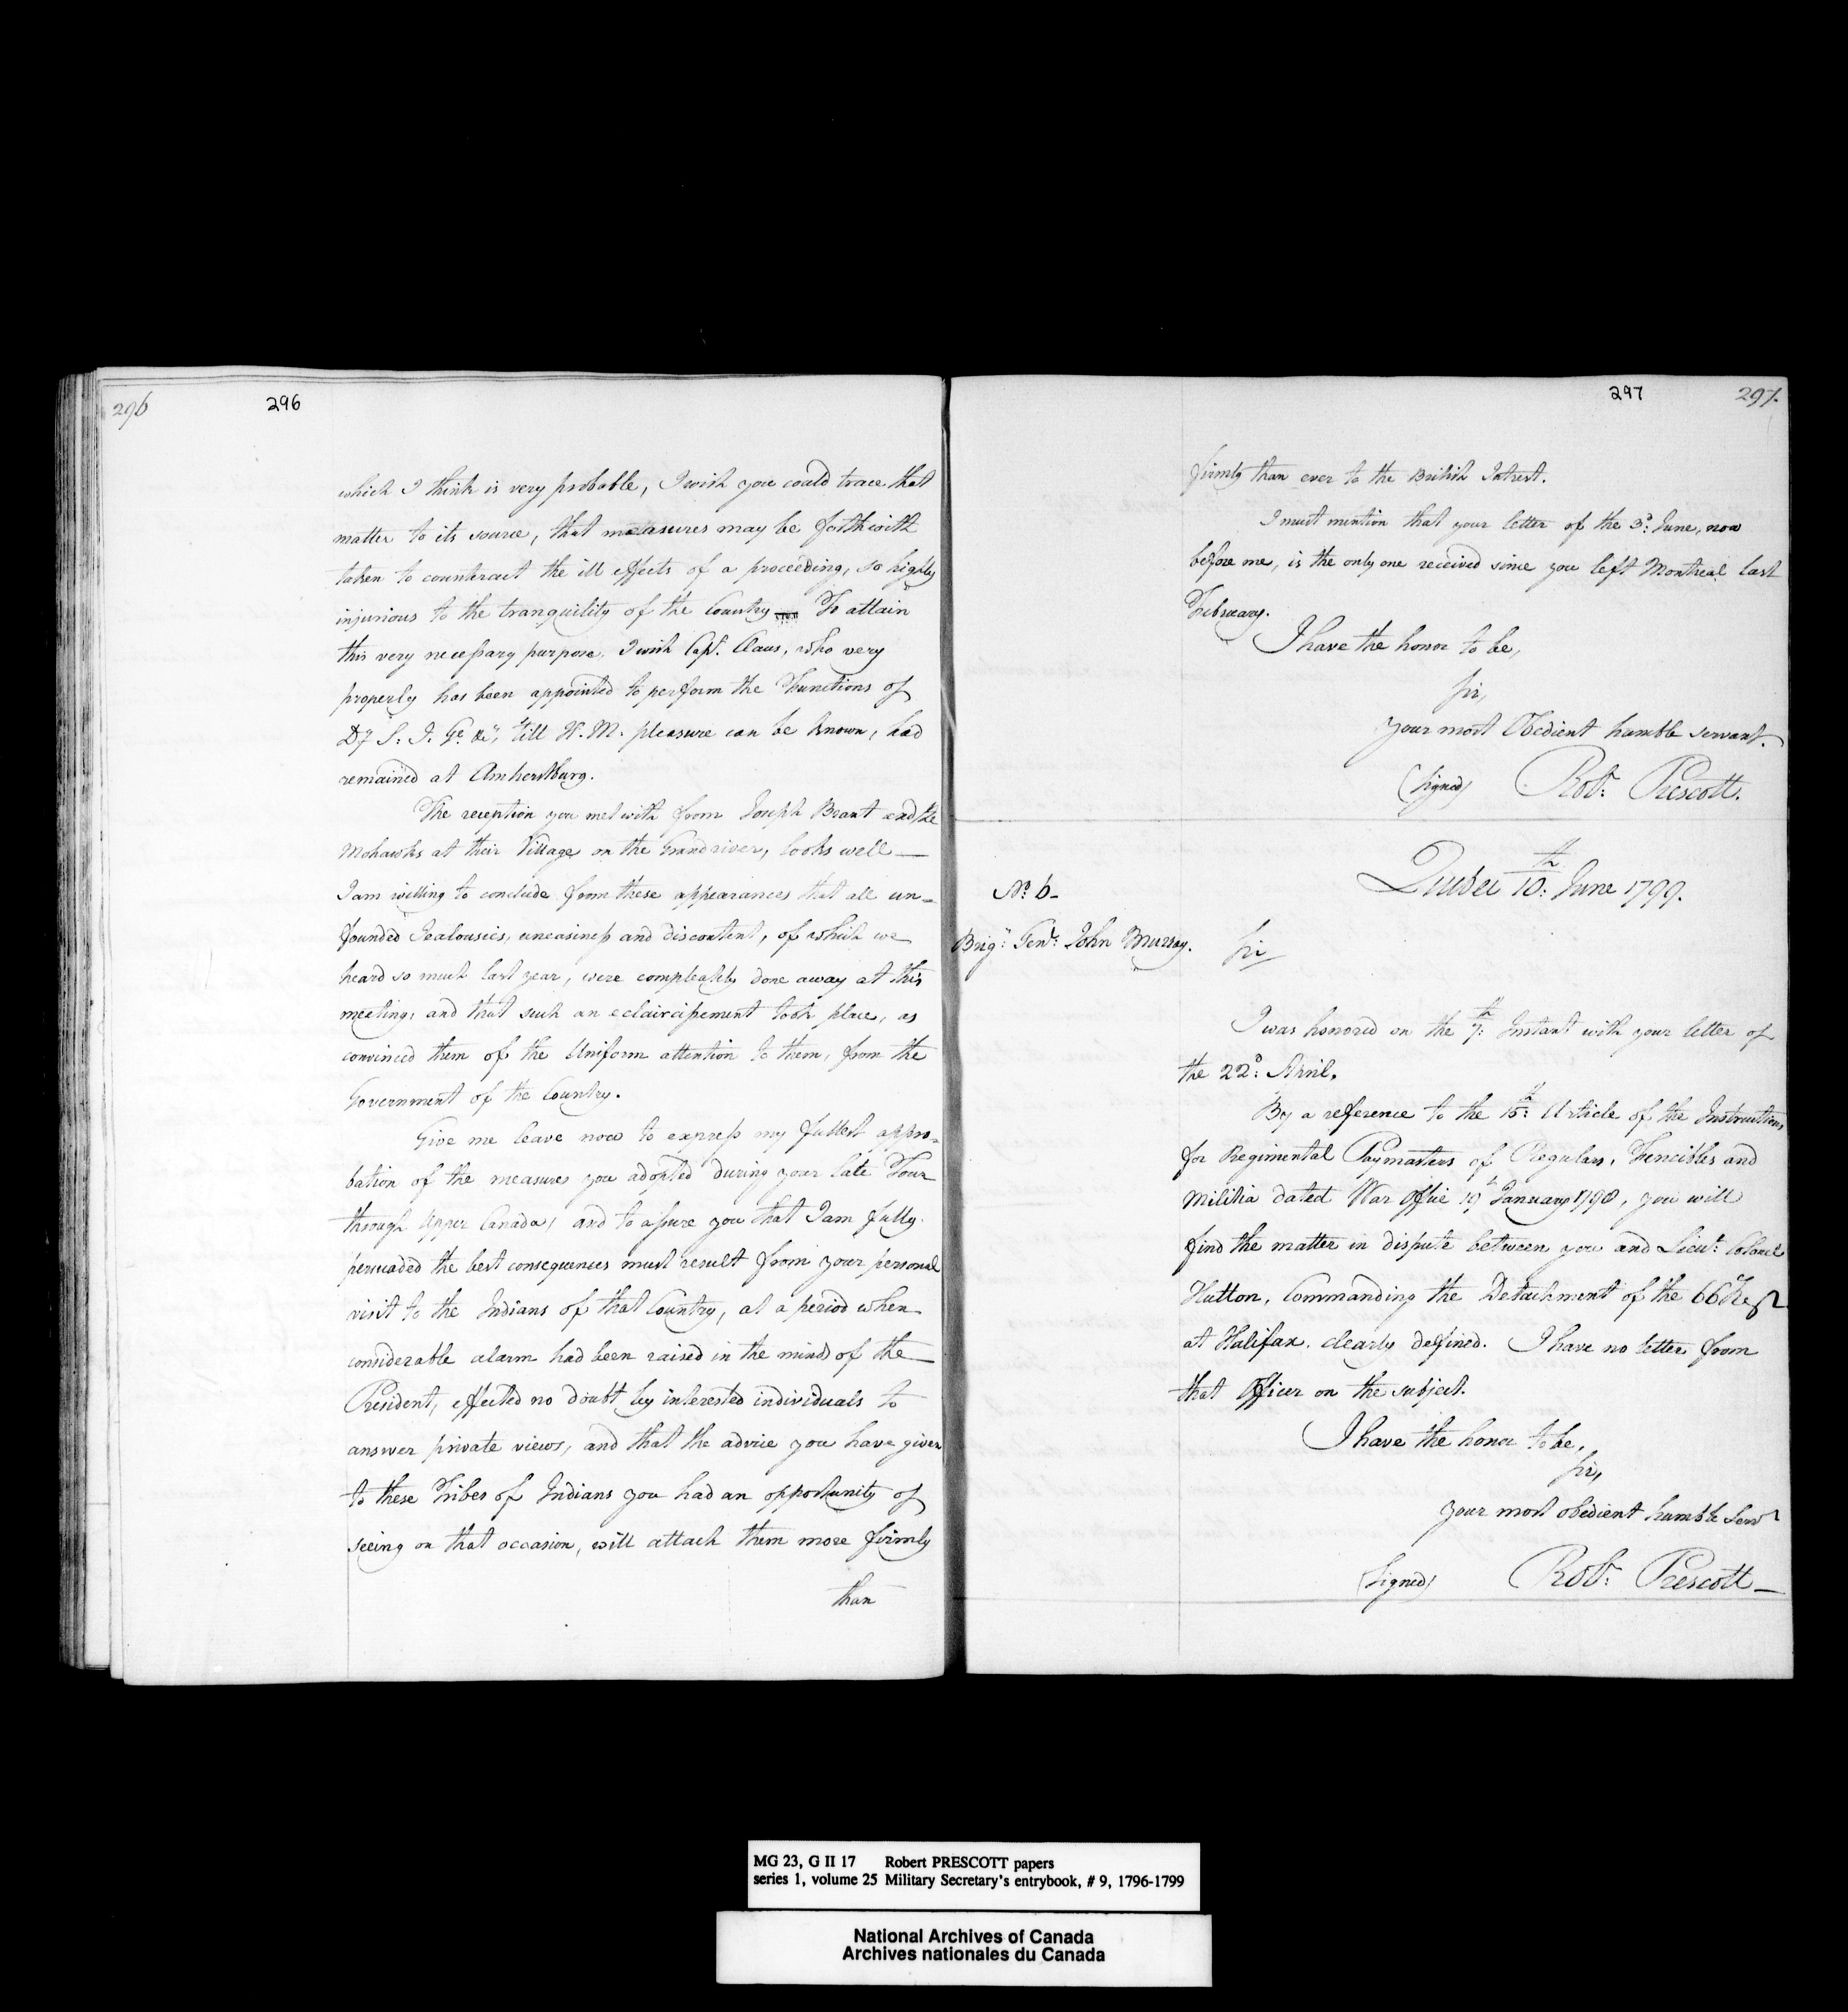 296
296
which I think is very probable, I wish you could trace that
matter to its source, that measures may be forthwith
taken to counteract the ill effects of a proceeding, so highly
injurious to the tranquility of the Country To attain
this very necessary purpose, I wish Capt. Claus, who very
properly has been appointed to perform the Functions of
Dy. S: I. Gl. &c, till H. M. pleasure can be known, had
remained at Amherstburg.
The reception you met with from Joseph Brant and the
Mohawks at their Village on the Grand river, looks well —
I am willing to conclude from these appearances that all un=
founded Jealousies, uneasiness and discontent, of which we
heard so much last year, were compleately done away at this
meeting, and that such an eclaircissement took place, as
convinced them of the Uniform attention to them, from the
Government of the Country.
Give me leave now to express my fullest appro=
bation of the measures you adopted during your late Tour
through Upper Canada, and to assure you that I am fully
persuaded the best consequences must result from your personal
visit to the Indians of that Country, at a period when
considerable alarm had been raised in the minds of the
President, effected no doubt by interested individuals to
answer private views, and that the advice you have given
to these Tribes of Indians you had an opportunity of
seeing on that occasion, will attach them more firmly
than
297
297.
firmly than ever to the British Intrest.
I must mention that your letter of the 3d: June, now
before me, is the only one received since you left Montreal last
February.
I have the honor to be,
Sir,
Your most Obedient humble servant.
(Signed) Robt: Prescott.
Quebec 10th: June 1799.
No. 6_
Brigr: Genl: John Murray.
Sir
I was honored on the 7th: Instant with your letter of
the 22d: April.
By a reference to the 15th: Article of the Instructions
for Regimental Paymasters of Regulars, Fencibles and
Militia dated War Office 19th January 1798, you will
find the matter in dispute between you and Lieut: Colonel
Hutton, Commanding the Detachment of the 66th Regt
at Halifax, clearly defined. I have no letter from
that Officer on the subject.
I have the honor to be,
Sir,
Your most obedient humble Servt
(Signed) Robt: Prescott_
MG 23, G II 17 Robert PRESCOTT papers
series 1, volume 25 Military Secretary's entrybook, # 9, 1796-1799
National Archives of Canada
Archives nationales du Canada